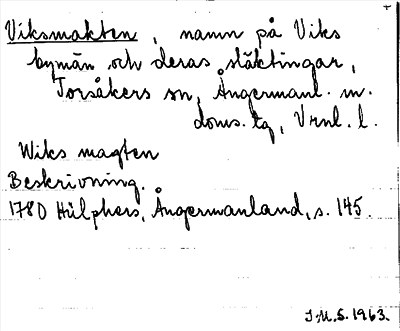 Viksmakten, namn på Viks
bymän och deras släktingar,
Torsåkers sn, Ångermanl. m.
doms. tg, Vrnl. l.
Wiks magten
Beskrivning.
1780 Hülphers, Ångermanland, s. 145.
I.M.S. 1963.